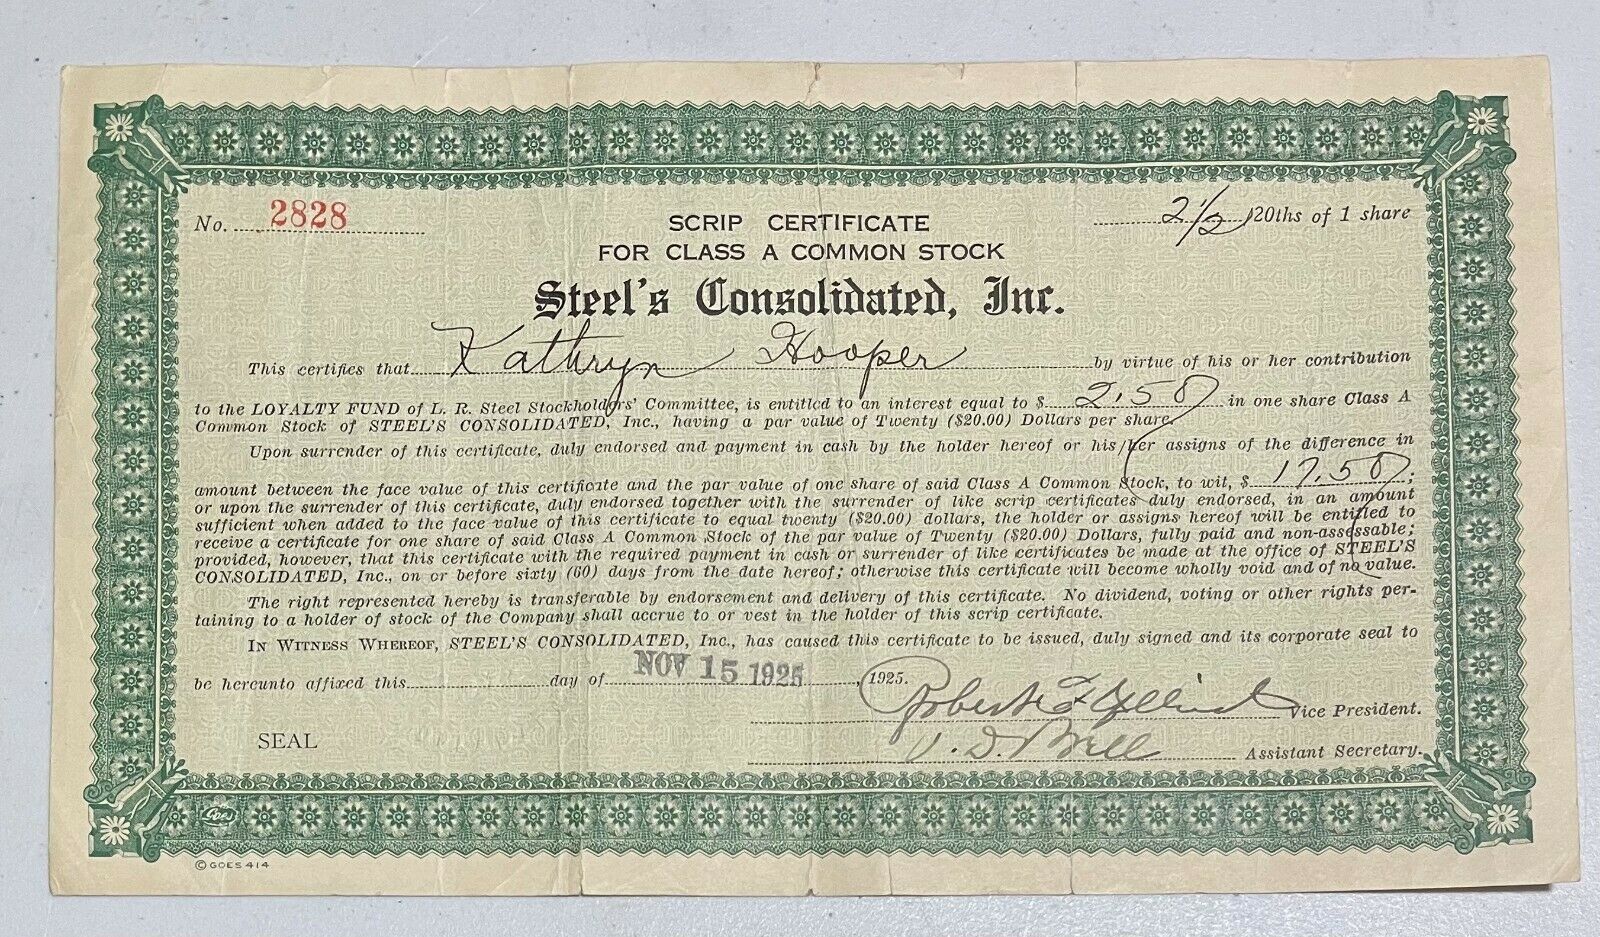 No. 2828
2 1/2 /20ths of 1 share
SCRIP CERTIFICATE
FOR CLASS A COMMON STOCK
Steel's Consolidated, Inc.
This certifies that Kathryn Hooper by virtue of his or her contribution
to the LOYALTY FUND of L. R. Steel Stockholders' Committee, is entitled to an interest equal to $ 2.50 in one share Class A
Common Stock of STEEL'S CONSOLIDATED, Inc., having a par value of Twenty ($20.00) Dollars per share.
Upon surrender of this certificate, duly endorsed and payment in cash by the holder hereof or his/her assigns of the difference in
amount between the face value of this certificate and the par value of one share of said Class A Common Stock, to wit, $ 17.50;
or upon the surrender of this certificate, duly endorsed together with the surrender of like scrip certificates duly endorsed, in an amount
sufficient when added to the face value of this certificate to equal twenty ($20.00) dollars, the holder or assigns hereof will be entitled to
receive a certificate for one share of said Class A Common Stock of the par value of Twenty ($20.00) Dollars, fully paid and non-assessable;
provided, however, that this certificate with the required payment in cash or surrender of like certificates be made at the office of STEEL'S
CONSOLIDATED, Inc., on or before sixty (60) days from the date hereof; otherwise this certificate will become wholly void and of no value.
The right represented hereby is transferable by endorsement and delivery of this certificate. No dividend, voting or other rights per-
taining to a holder of stock of the Company shall accrue to or vest in the holder of this scrip certificate.
IN WITNESS WHEREOF, STEEL'S CONSOLIDATED, Inc., has caused this certificate to be issued, duly signed and its corporate seal to
be hereunto affixed this day of NOV 15 1925, 1925.
Vice President.
SEAL
Assistant Secretary.
Goes
© GOES 414